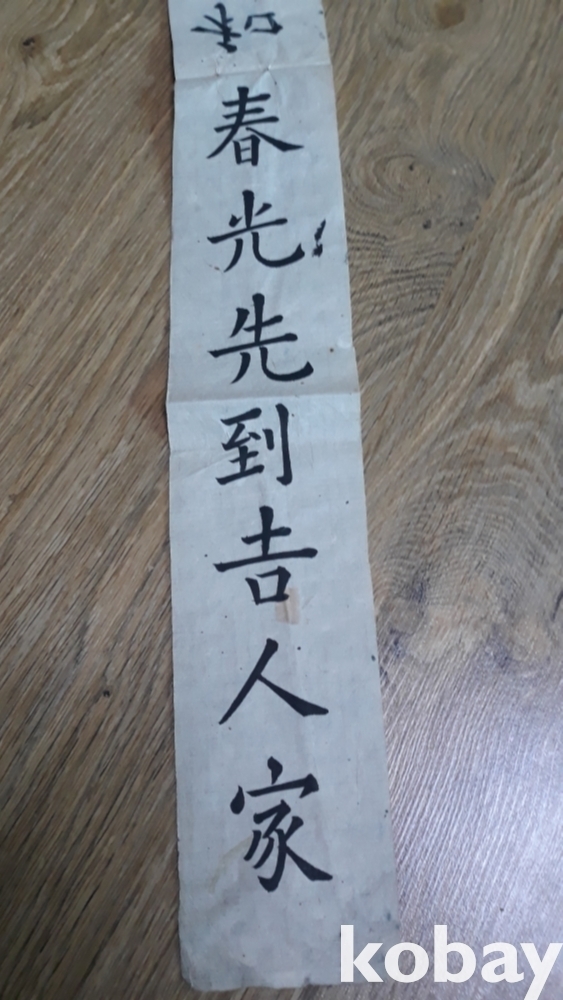 和
春光先到吉人家
kobay